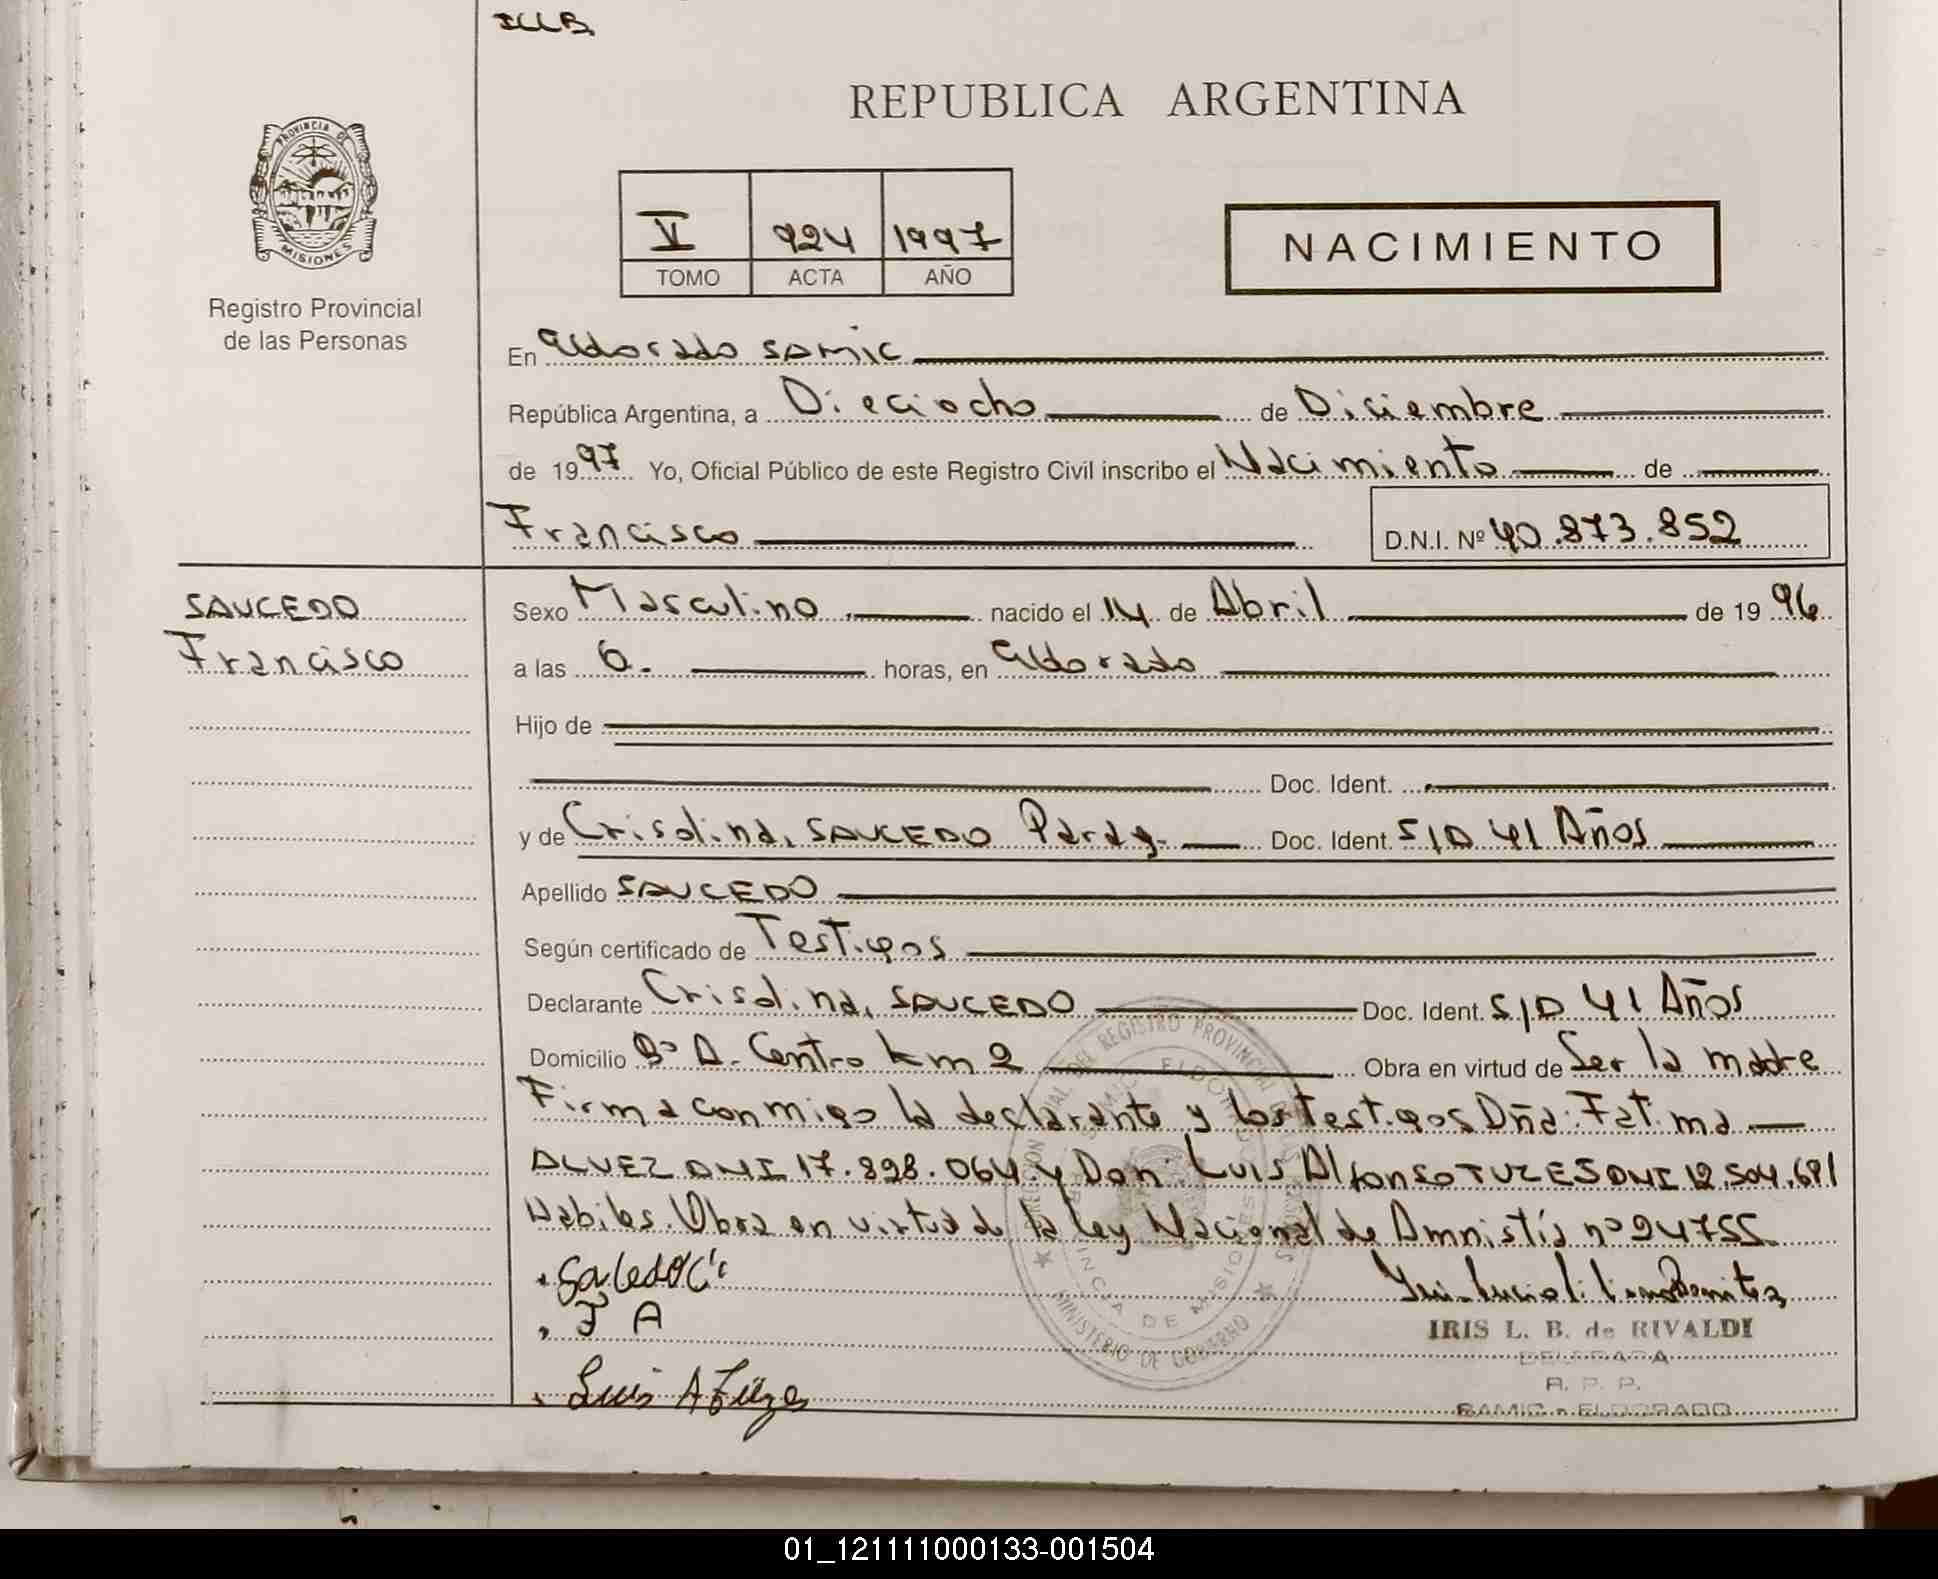 REPUBLICA ARGENTINA
PROVINCIA DE
MISIONES
Registro Provincial
de las Personas
V 924 1997
TOMO ACTA AÑO
NACIMIENTO
En Eldorado SAMIC
República Argentina, a Dieciocho de Diciembre
de 1997 Yo, Oficial Público de este Registro Civil inscribo el Nacimiento de
Francisco D.N.I. Nº 40.873.852
SAUCEDO
Francisco
Sexo Masculino nacido el 14 de Abril de 1996
a las 6. horas, en Eldorado
Hijo de
Doc. Ident.
y de Crisolina, SAUCEDO Parag. Doc. Ident. S/D 41 Años
Apellido SAUCEDO
Según certificado de Testigos
Declarante Crisolina, SAUCEDO Doc. Ident. S/D 41 Años
Domicilio Bº A. Centro km 2 Obra en virtud de Ser la madre
Firma conmigo la declarante y los Testigos Dña: Fatima
ALVEZ DNI 17.898.064 y Don: Luis Alfonso TUZES DNI 12.504.691
Habiles. Obra en virtud de la Ley Nacional de Amnistía nº 24755.
F A
Luis A
IRIS L. B. de RIVALDI
DELEGADA
R. P. P.
SAMIC - ELDORADO
MINISTERIO DE GOBIERNO
01_121111000133-001504